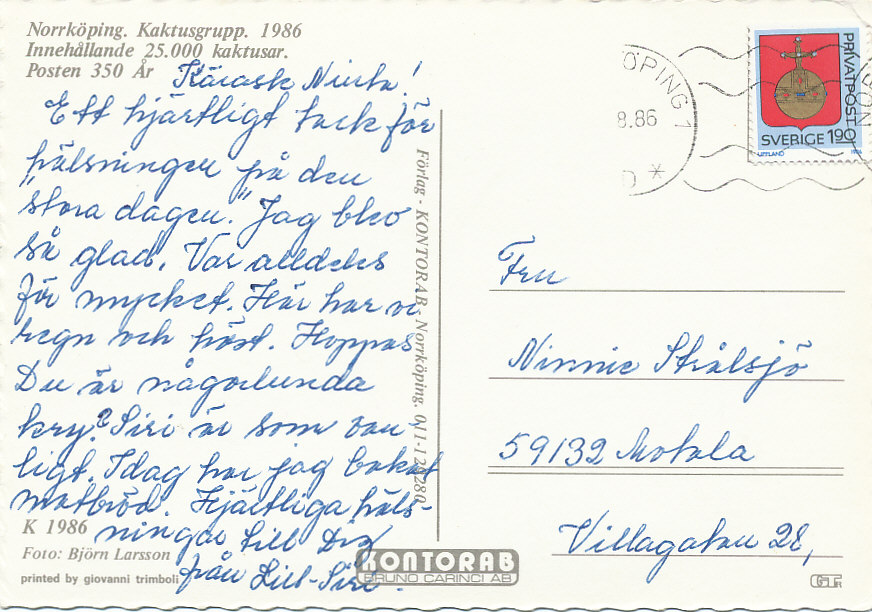 Norrköping. Kaktusgrupp. 1986
Innehållande 25.000 kaktusar.
Posten 350 År
Käraste
Ett hjärtligt tack för
hälsningen på den
"stora dagen." Jag blev
så glad. Var alldeles
för mycket. Här har vi
regn och höst. Hoppas
Du är någorlunda
kry? Siri är som van-
ligt. Idag har jag bakat
matbröd. Hjärtliga häls-
ningar till Dig
från Lill-Siri.
K 1986
Foto: Björn Larsson
printed by giovanni trimboli
Förlag - KONTORAB - Norrköping. 011-12
KONTORAB
BRUNO CARINCI AB
ÖPING 1
8.86
D *
PRIVATPOST
SVERIGE 190
UPPLAND
Fru
Ninnie Strålsjö
59132 Motala
Villagatan 28,